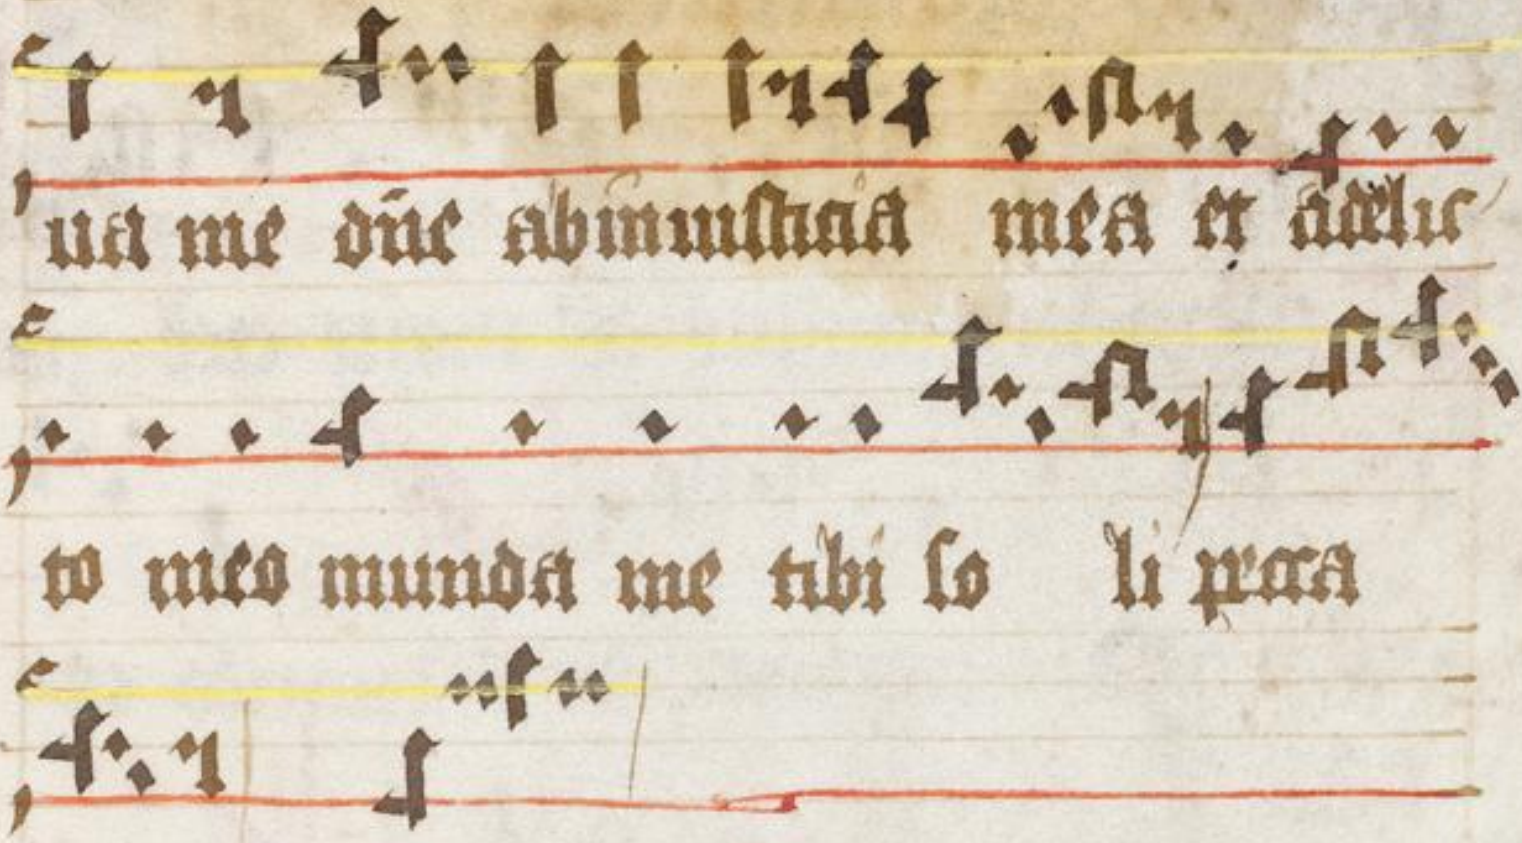 ua me dn̄e ab iniusticia mea et a delic
to meo munda me tibi so li pecca